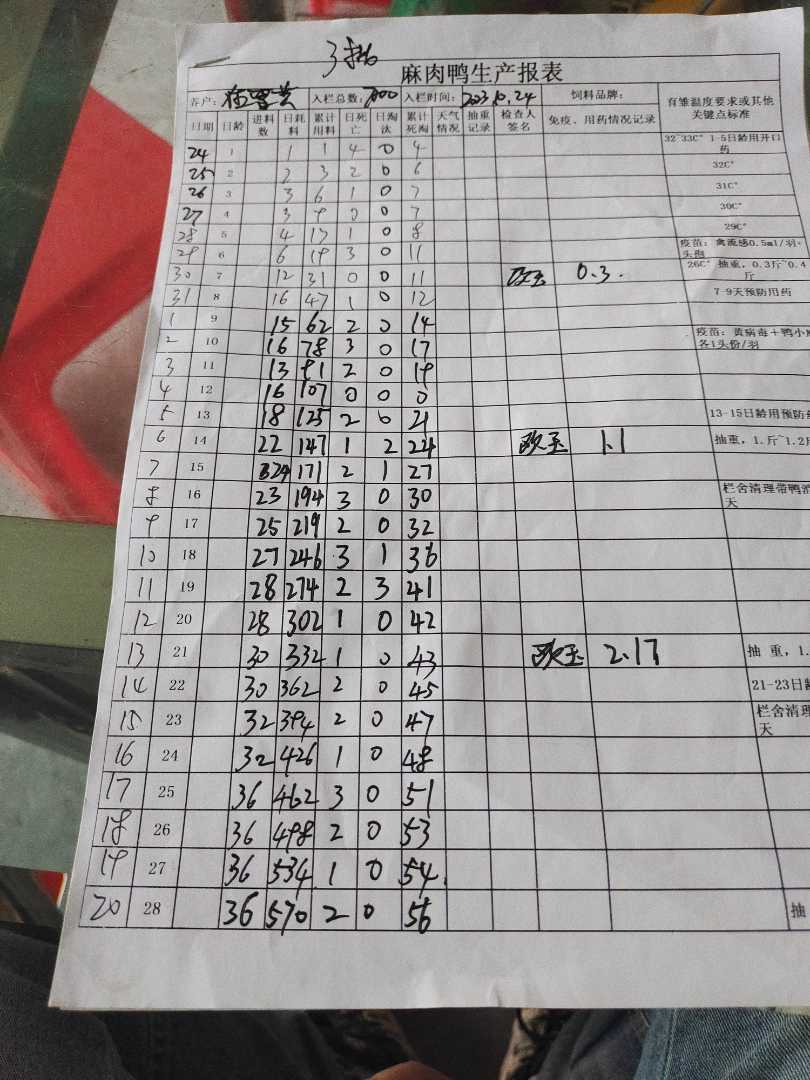 3批
麻肉鸭生产报表
养户： 入栏总数：7000 入栏时间：2023.10.24 饲料品牌： 育雏温度要求或其他关键点标准
日期 日龄 进料数 日耗料 累计用料 日死亡 日淘汰 累计死淘 天气情况 抽重记录 检查人签名 免疫、用药情况记录
24 1 1 1 4 0 4 32~33C° 1-5日龄用开口药
25 2 2 3 2 0 6 32C°
26 3 3 6 1 0 7 31C°
27 4 3 9 0 0 7 30C°
28 5 4 13 1 0 8 29C°
29 6 6 19 3 0 11 疫苗：禽流感0.5ml/羽、头孢
30 7 12 31 0 0 11 欧玉 0.3. 26C° 抽重，0.3斤~0.4斤
31 8 16 47 1 0 12 7-9天预防用药
1 9 15 62 2 0 14
2 10 16 78 3 0 17 疫苗：黄病毒＋鸭小 各1头份/羽
3 11 13 91 2 0 19
4 12 16 107 0 0 0
5 13 18 125 2 0 21 13-15日龄用预防
6 14 22 147 1 2 24 欧玉 1.1 抽重，1.斤~1.2
7 15 24 171 2 1 27
8 16 23 194 3 0 30 栏舍清理带鸭消 天
9 17 25 219 2 0 32
10 18 27 246 3 1 36
11 19 28 274 2 3 41
12 20 28 302 1 0 42
13 21 30 332 1 0 43 欧玉 2.17 抽 重，1.
14 22 30 362 2 0 45 21-23日龄
15 23 32 394 2 0 47 栏舍清理 天
16 24 32 426 1 0 48
17 25 36 462 3 0 51
18 26 36 498 2 0 53
19 27 36 534 1 0 54.
20 28 36 570 2 0 56 抽